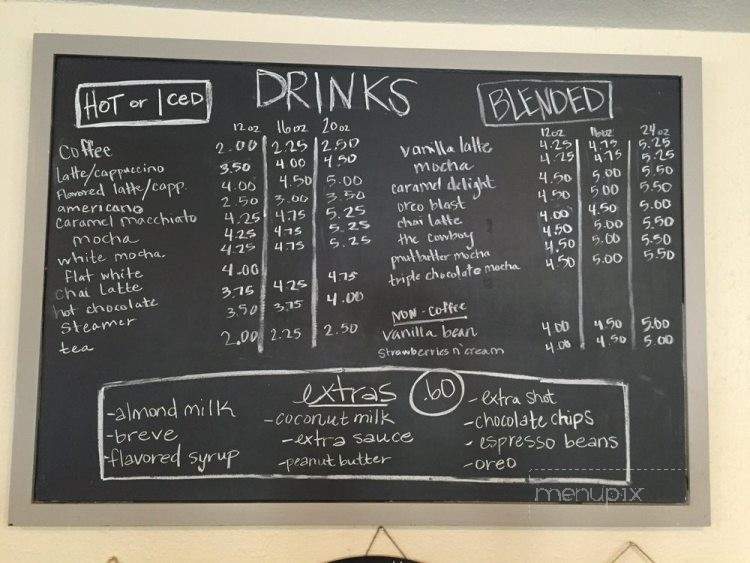 DRINKS
HOT or ICED
12oz 16oz 20oz
coffee 2.00 2.25 2.50
latte/cappuccino 3.50 4.00 4.50
flavored latte/capp. 4.00 4.50 5.00
americano 2.50 3.00 3.50
caramel macchiato 4.25 4.75 5.25
mocha 4.25 4.75 5.25
white mocha 4.25 4.75 5.25
flat white 4.00
chai latte 3.75 4.25 4.75
hot chocolate 3.50 3.75 4.00
steamer
tea 2.00 2.25 2.50
BLENDED
12oz 16oz 24oz
vanilla latte 4.25 4.75 5.25
mocha 4.25 4.75 5.25
caramel delight 4.50 5.00 5.50
oreo blast 4.50 5.00 5.50
chai latte 4.00 4.50 5.00
the cowboy 4.50 5.00 5.50
pnutbutter mocha 4.50 5.00 5.50
triple chocolate mocha 4.50 5.00 5.50
NON-coffee
vanilla bean 4.00 4.50 5.00
strawberries n' cream 4.00 4.50 5.00
extras .60
-almond milk
-breve
-flavored syrup
-coconut milk
-extra sauce
-peanut butter
-extra shot
-chocolate chips
-espresso beans
-oreo
menupix